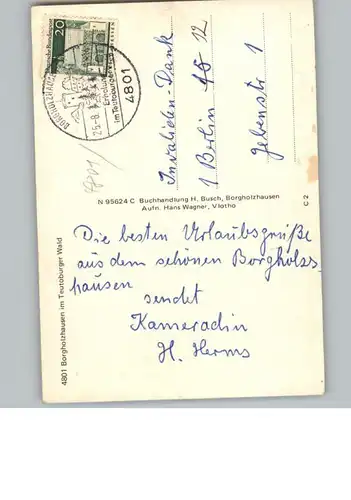 Deutsche Bundespost
20
BORGHOLZHAUSEN
Erholung
im Teutoburger
4801
Invaliden-Dank
1 Berlin 45 12
Jebenstr 1
N 95624 C Buchhandlung H. Busch, Borgholzhausen
Aufn. Hans Wagner, Vlotho
C 2
4801 Borgholzhausen im Teutoburger Wald
Die besten Urlaubsgrüße
aus dem schönen Borgholz-
hausen
sendet
Kameradin
H. Herms